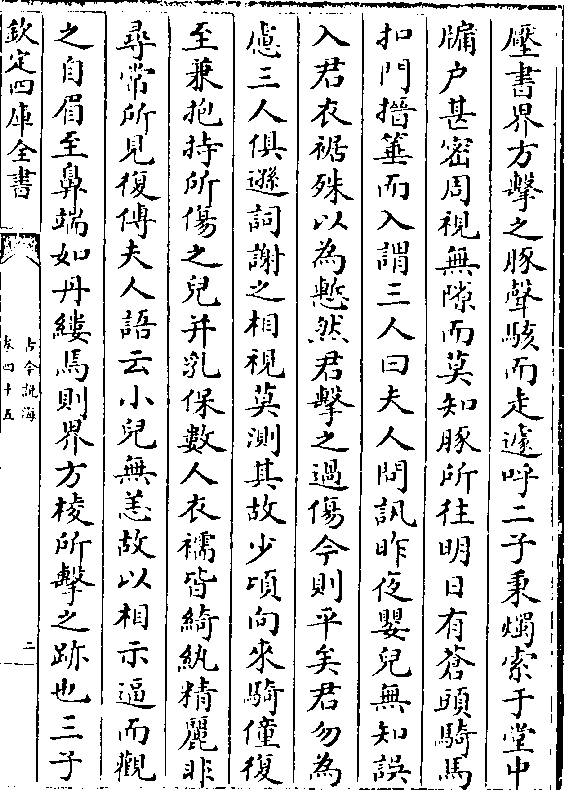 壓書界方擊之豚聲駭而走遽呼二子秉燭索于堂中
牖户甚密周視無隙而莫知豚所往明日有蒼頭騎馬
扣門搢箠而入謂三人曰夫人問訊昨夜嬰兒無知誤
入君衣裾殊以為慙然君擊之過傷今則平矣君勿為
慮三人俱遜詞謝之相視莫測其故少頃向來騎僮復
至兼抱持所傷之兒并乳保數人衣襦皆綺紈精麗非
尋常所見復傳夫人語云小兒無恙故以相示逼而觀
之自眉至鼻端如丹縷焉則界方棱所擊之跡也三子
欽定四庫全書
古今說海
卷四十五
二